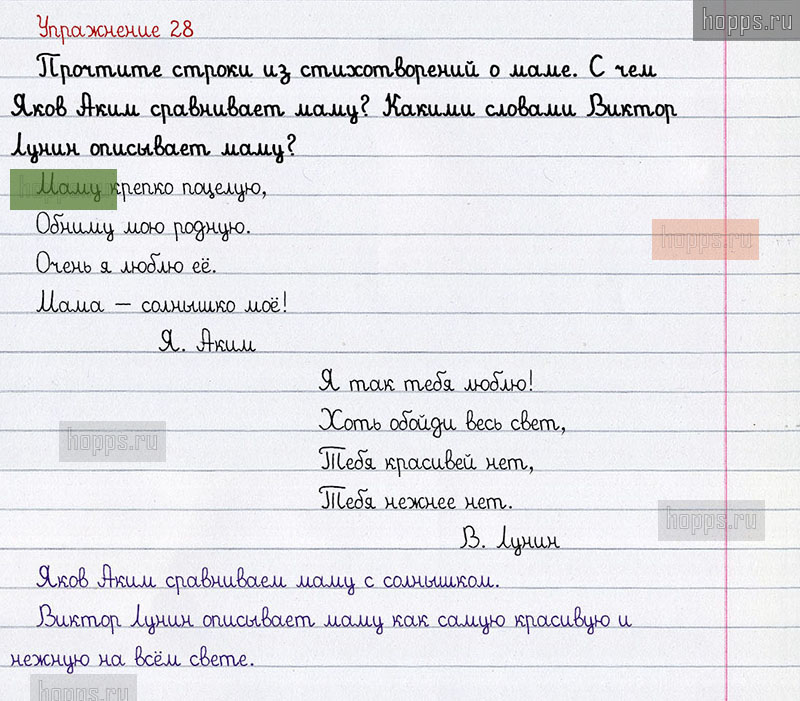 hopps.ru
Упражнение 28
Прочтите строки из стихотворений о маме. С чем
Яков Аким сравнивает маму? Какими словами Виктор
Лунин описывает маму?
Маму крепко поцелую,
Обниму мою родную.
hopps.ru
Очень я люблю её.
Мама – солнышко моё!
Я. Аким
Я так тебя люблю!
Хоть обойди весь свет,
hopps.ru
Тебя красивей нет,
Тебя нежнее нет.
hopps.ru
В. Лунин
Яков Аким сравниваем маму с солнышком.
Виктор Лунин описывает маму как самую красивую и
нежную на всём свете.
hopps.ru